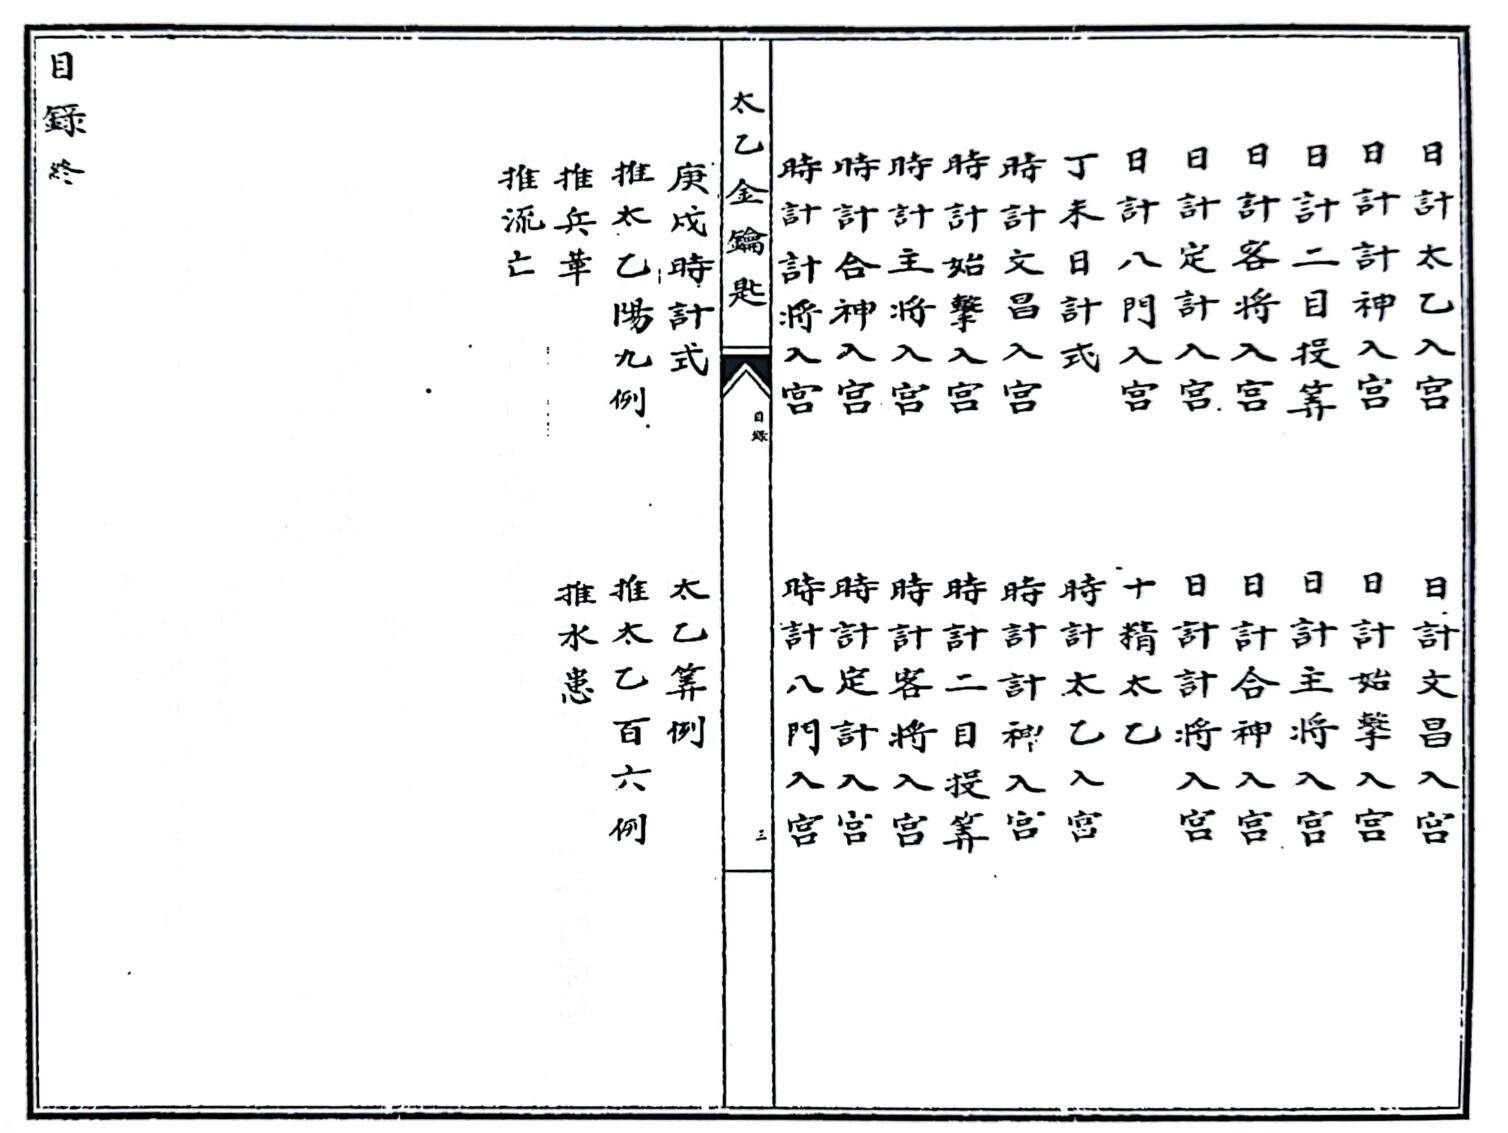 日計太乙入宮　日計文昌入宮
日計計神入宮　日計始擊入宮
日計二目投筭　日計主將入宮
日計客將入宮　日計合神入宮
日計定計入宮　日計計將入宮
日計八門入宮　十精太乙
丁未日計式　時計太乙入宮
時計文昌入宮　時計計神入宮
時計始擊入宮　時計二目投筭
時計主將入宮　時計客將入宮
時計合神入宮　時計定計入宮
時計計將入宮　時計八門入宮
太乙金鑰匙
目錄
三
庚戌時計式　太乙筭例
推太乙陽九例　推太乙百六例
推兵革　推水患
推流亡
目錄終